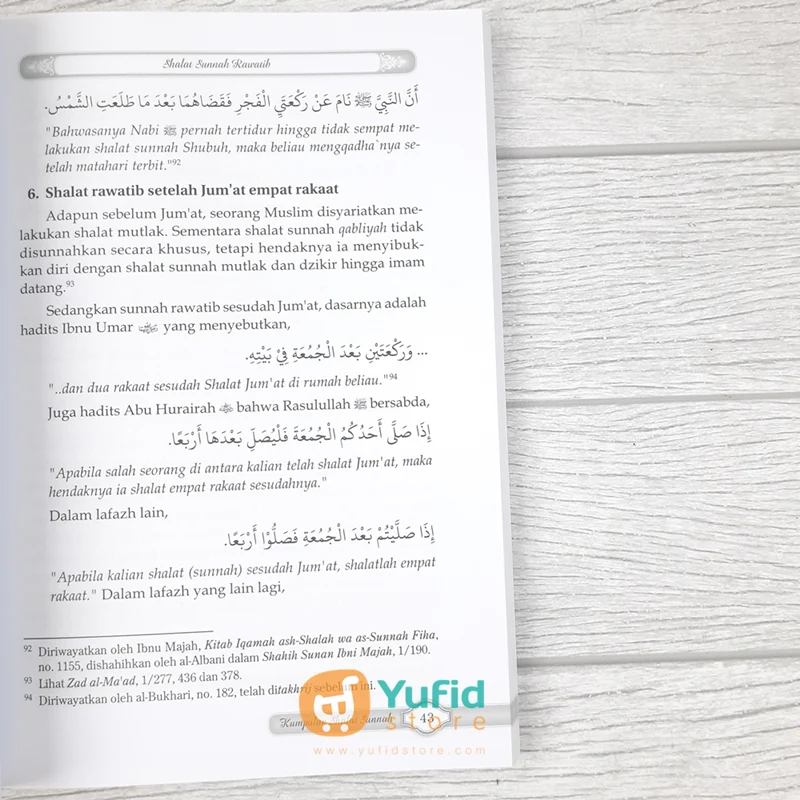 Shalat Sunnah Rawatib
أَنَّ النَّبِيَّ ﷺ نَامَ عَنْ رَكْعَتَيِ الْفَجْرِ فَقَضَاهُمَا بَعْدَ مَا طَلَعَتِ الشَّمْسُ.
"Bahwasanya Nabi ﷺ pernah tertidur hingga tidak sempat me-
lakukan shalat sunnah Shubuh, maka beliau mengqadha`nya se-
telah matahari terbit."92
6. Shalat rawatib setelah Jum'at empat rakaat
Adapun sebelum Jum'at, seorang Muslim disyariatkan me-
lakukan shalat mutlak. Sementara shalat sunnah qabliyah tidak
disunnahkan secara khusus, tetapi hendaknya ia menyibuk-
kan diri dengan shalat sunnah mutlak dan dzikir hingga imam
datang.93
Sedangkan sunnah rawatib sesudah Jum'at, dasarnya adalah
hadits Ibnu Umar yang menyebutkan,
... وَرَكْعَتَيْنِ بَعْدَ الْجُمُعَةِ فِيْ بَيْتِهِ.
"..dan dua rakaat sesudah Shalat Jum'at di rumah beliau."94
Juga hadits Abu Hurairah bahwa Rasulullah ﷺ bersabda,
إِذَا صَلَّى أَحَدُكُمُ الْجُمُعَةَ فَلْيُصَلِّ بَعْدَهَا أَرْبَعًا.
"Apabila salah seorang di antara kalian telah shalat Jum'at, maka
hendaknya ia shalat empat rakaat sesudahnya."
Dalam lafazh lain,
إِذَا صَلَّيْتُمْ بَعْدَ الْجُمُعَةِ فَصَلُّوْا أَرْبَعًا.
"Apabila kalian shalat (sunnah) sesudah Jum'at, shalatlah empat
rakaat." Dalam lafazh yang lain lagi,
92 Diriwayatkan oleh Ibnu Majah, Kitab Iqamah ash-Shalah wa as-Sunnah Fiha,
no. 1155, dishahihkan oleh al-Albani dalam Shahih Sunan Ibni Majah, 1/190.
93 Lihat Zad al-Ma'ad, 1/277, 436 dan 378.
94 Diriwayatkan oleh al-Bukhari, no. 182, telah ditakhrij sebelum ini.
Kumpulan Shalat Sunnah 43
Yufid
store
www.yufidstore.com